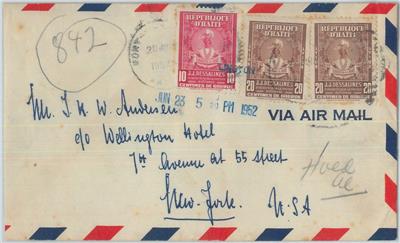 842
REPUBLIQUE D'HAITI
J.J. DESSALINES
10 10
CENTIMES DE GOURDE
REPUBLIQUE D'HAITI
J.J. DESSALINES
20 20
CENTIMES DE GOURDE
REPUBLIQUE D'HAITI
J.J. DESSALINES
20 20
CENTIMES DE GOURDE
JUN 23 5 PM 1952
VIA AIR MAIL
Mr. J. K. W. Andersen
c/o Wellington Hotel
7th Avenue at 55 street
New-York. USA